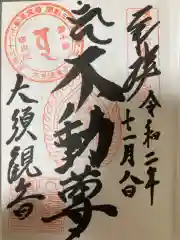 奉拝
令和二年
十一月八日
不動尊
大須観音